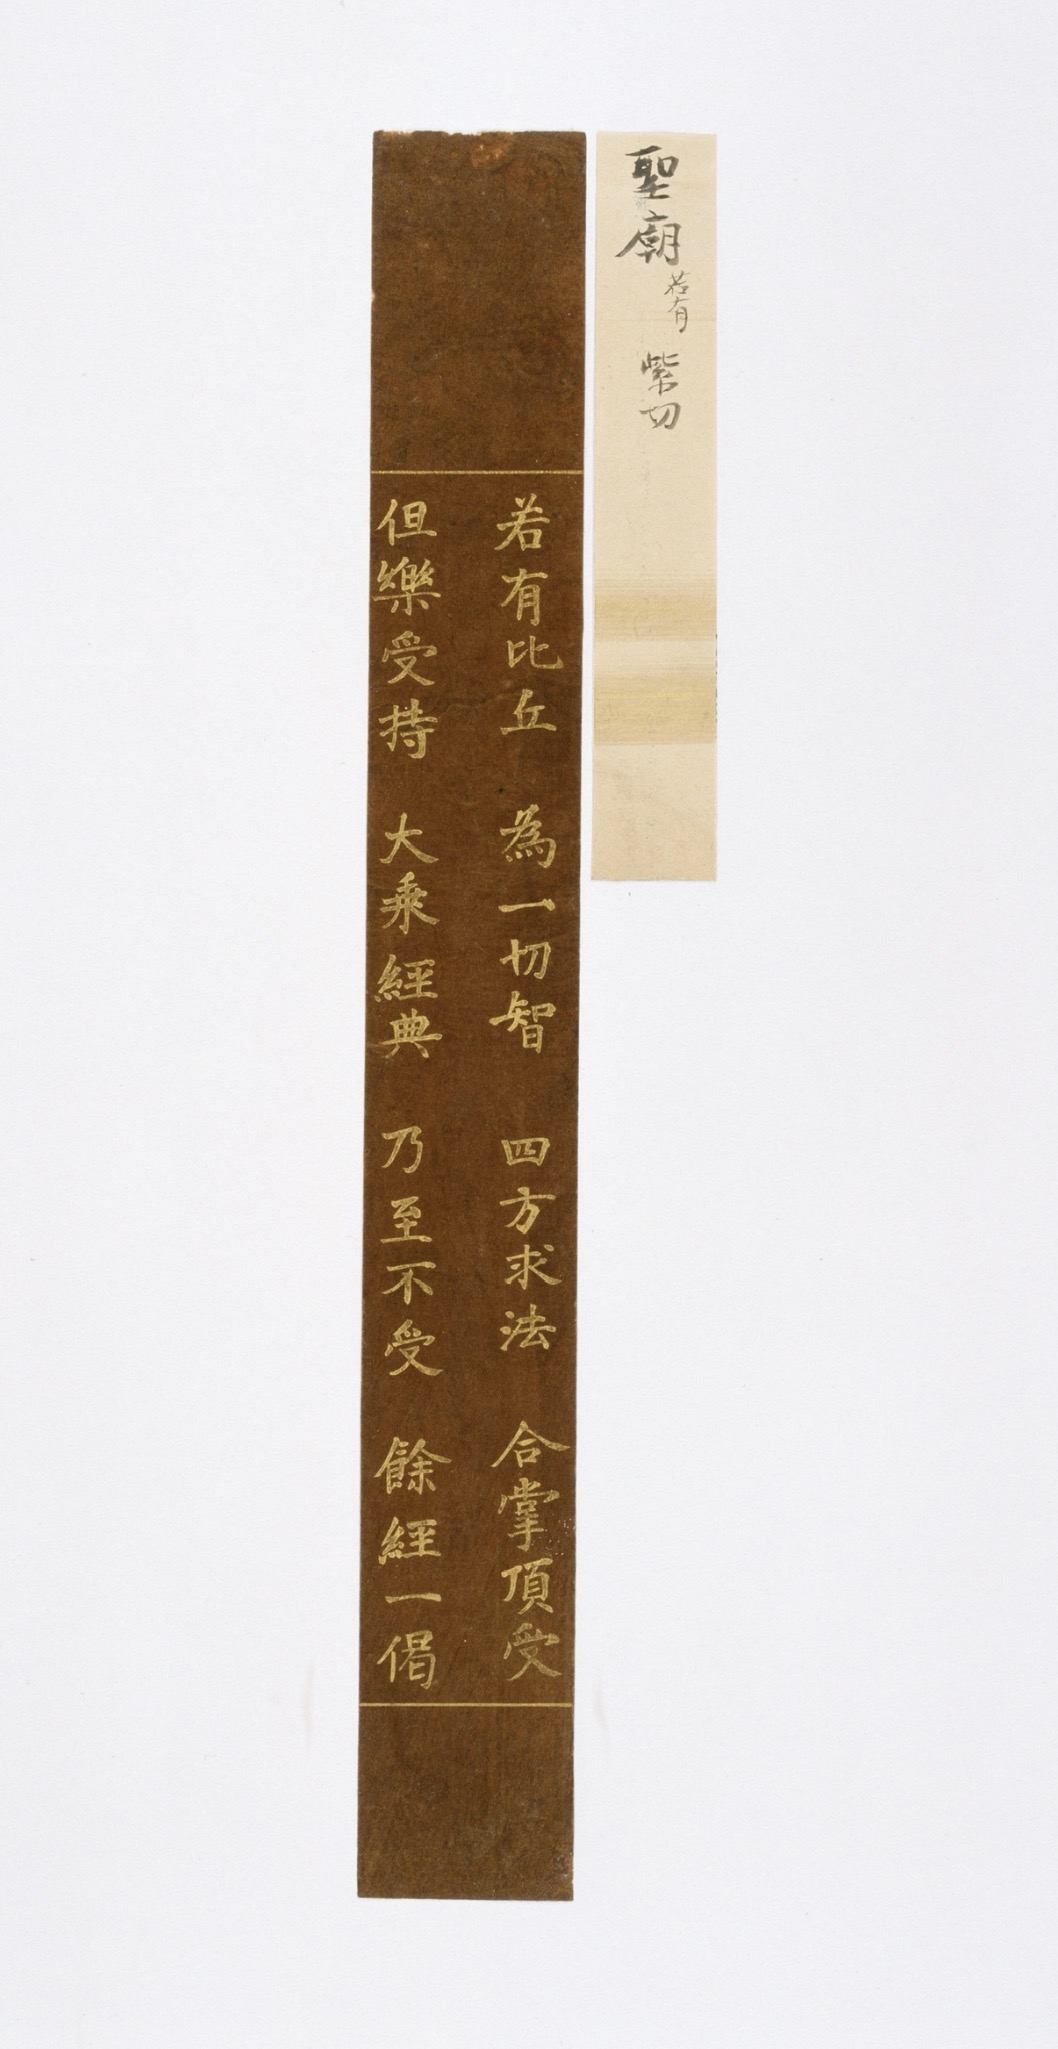 聖廟 若有 紫切
若有比丘 為一切智 四方求法 合掌頂受
但樂受持 大乘經典 乃至不受 餘經一偈